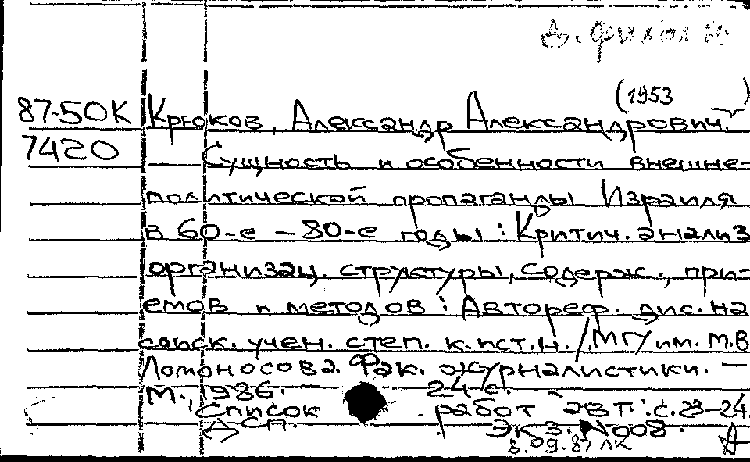 Д. филол
(1953
87-50К Крюков, Александр Александрович.
7420 Сущность и особенности внешне-
политической пропаганды Израиля
в 60-е - 80-е годы: Критич. анализ
организац. структуры, содерж., при-
емов и методов: Автореф. дис. на
соиск. учен. степ. к.ист.н. / МГУ им. М.В.
Ломоносова. Фак. журналистики. —
М., 1986. 24 с.
Список работ авт.: с. 23-24.
ДСП. Экз. №008.
3.09.87 ЛК